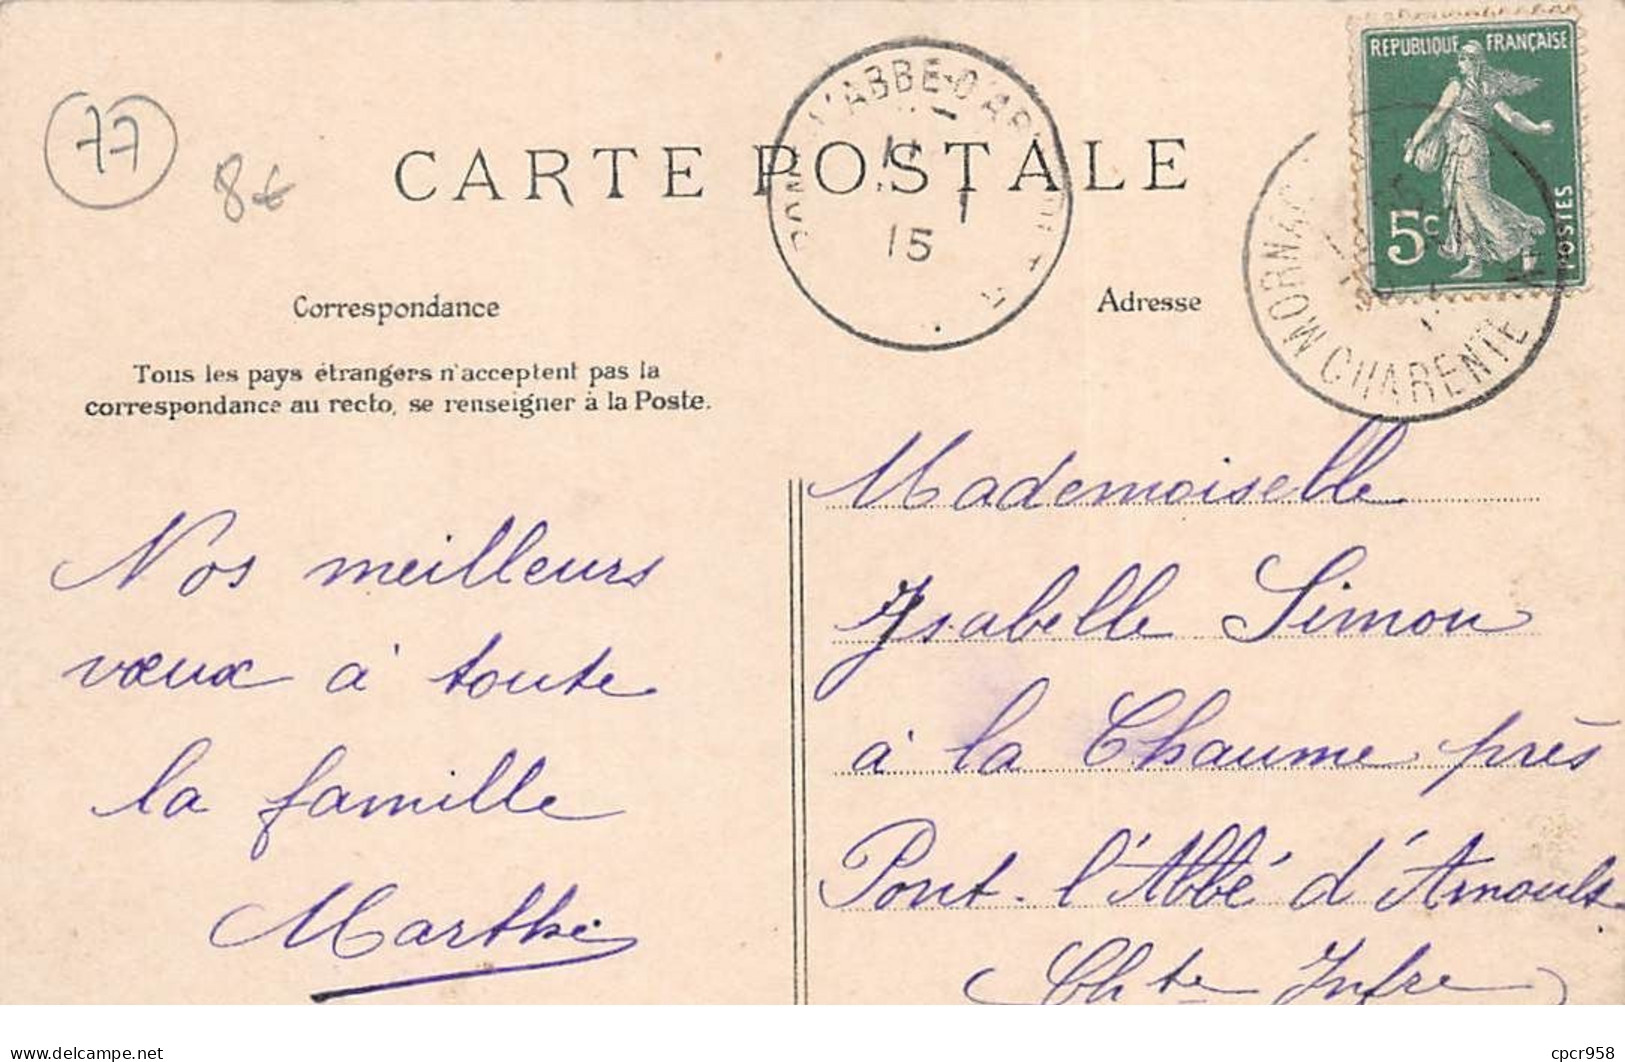 77
8€
CARTE POSTALE
RÉPUBLIQUE FRANÇAISE
5c
POSTES
L'ABBE-D'AR
11
1
15
MORNAC
CHARENTE
Correspondance
Adresse
Tous les pays étrangers n'acceptent pas la
correspondance au recto, se renseigner à la Poste.
Nos meilleurs
vœux à toute
la famille
Marthe
Mademoiselle
Isabelle Simon
à la Chaume près
Pont-l'Abbé d'Arnoult
(Chte Infre)
www.delcampe.net
cpcr958